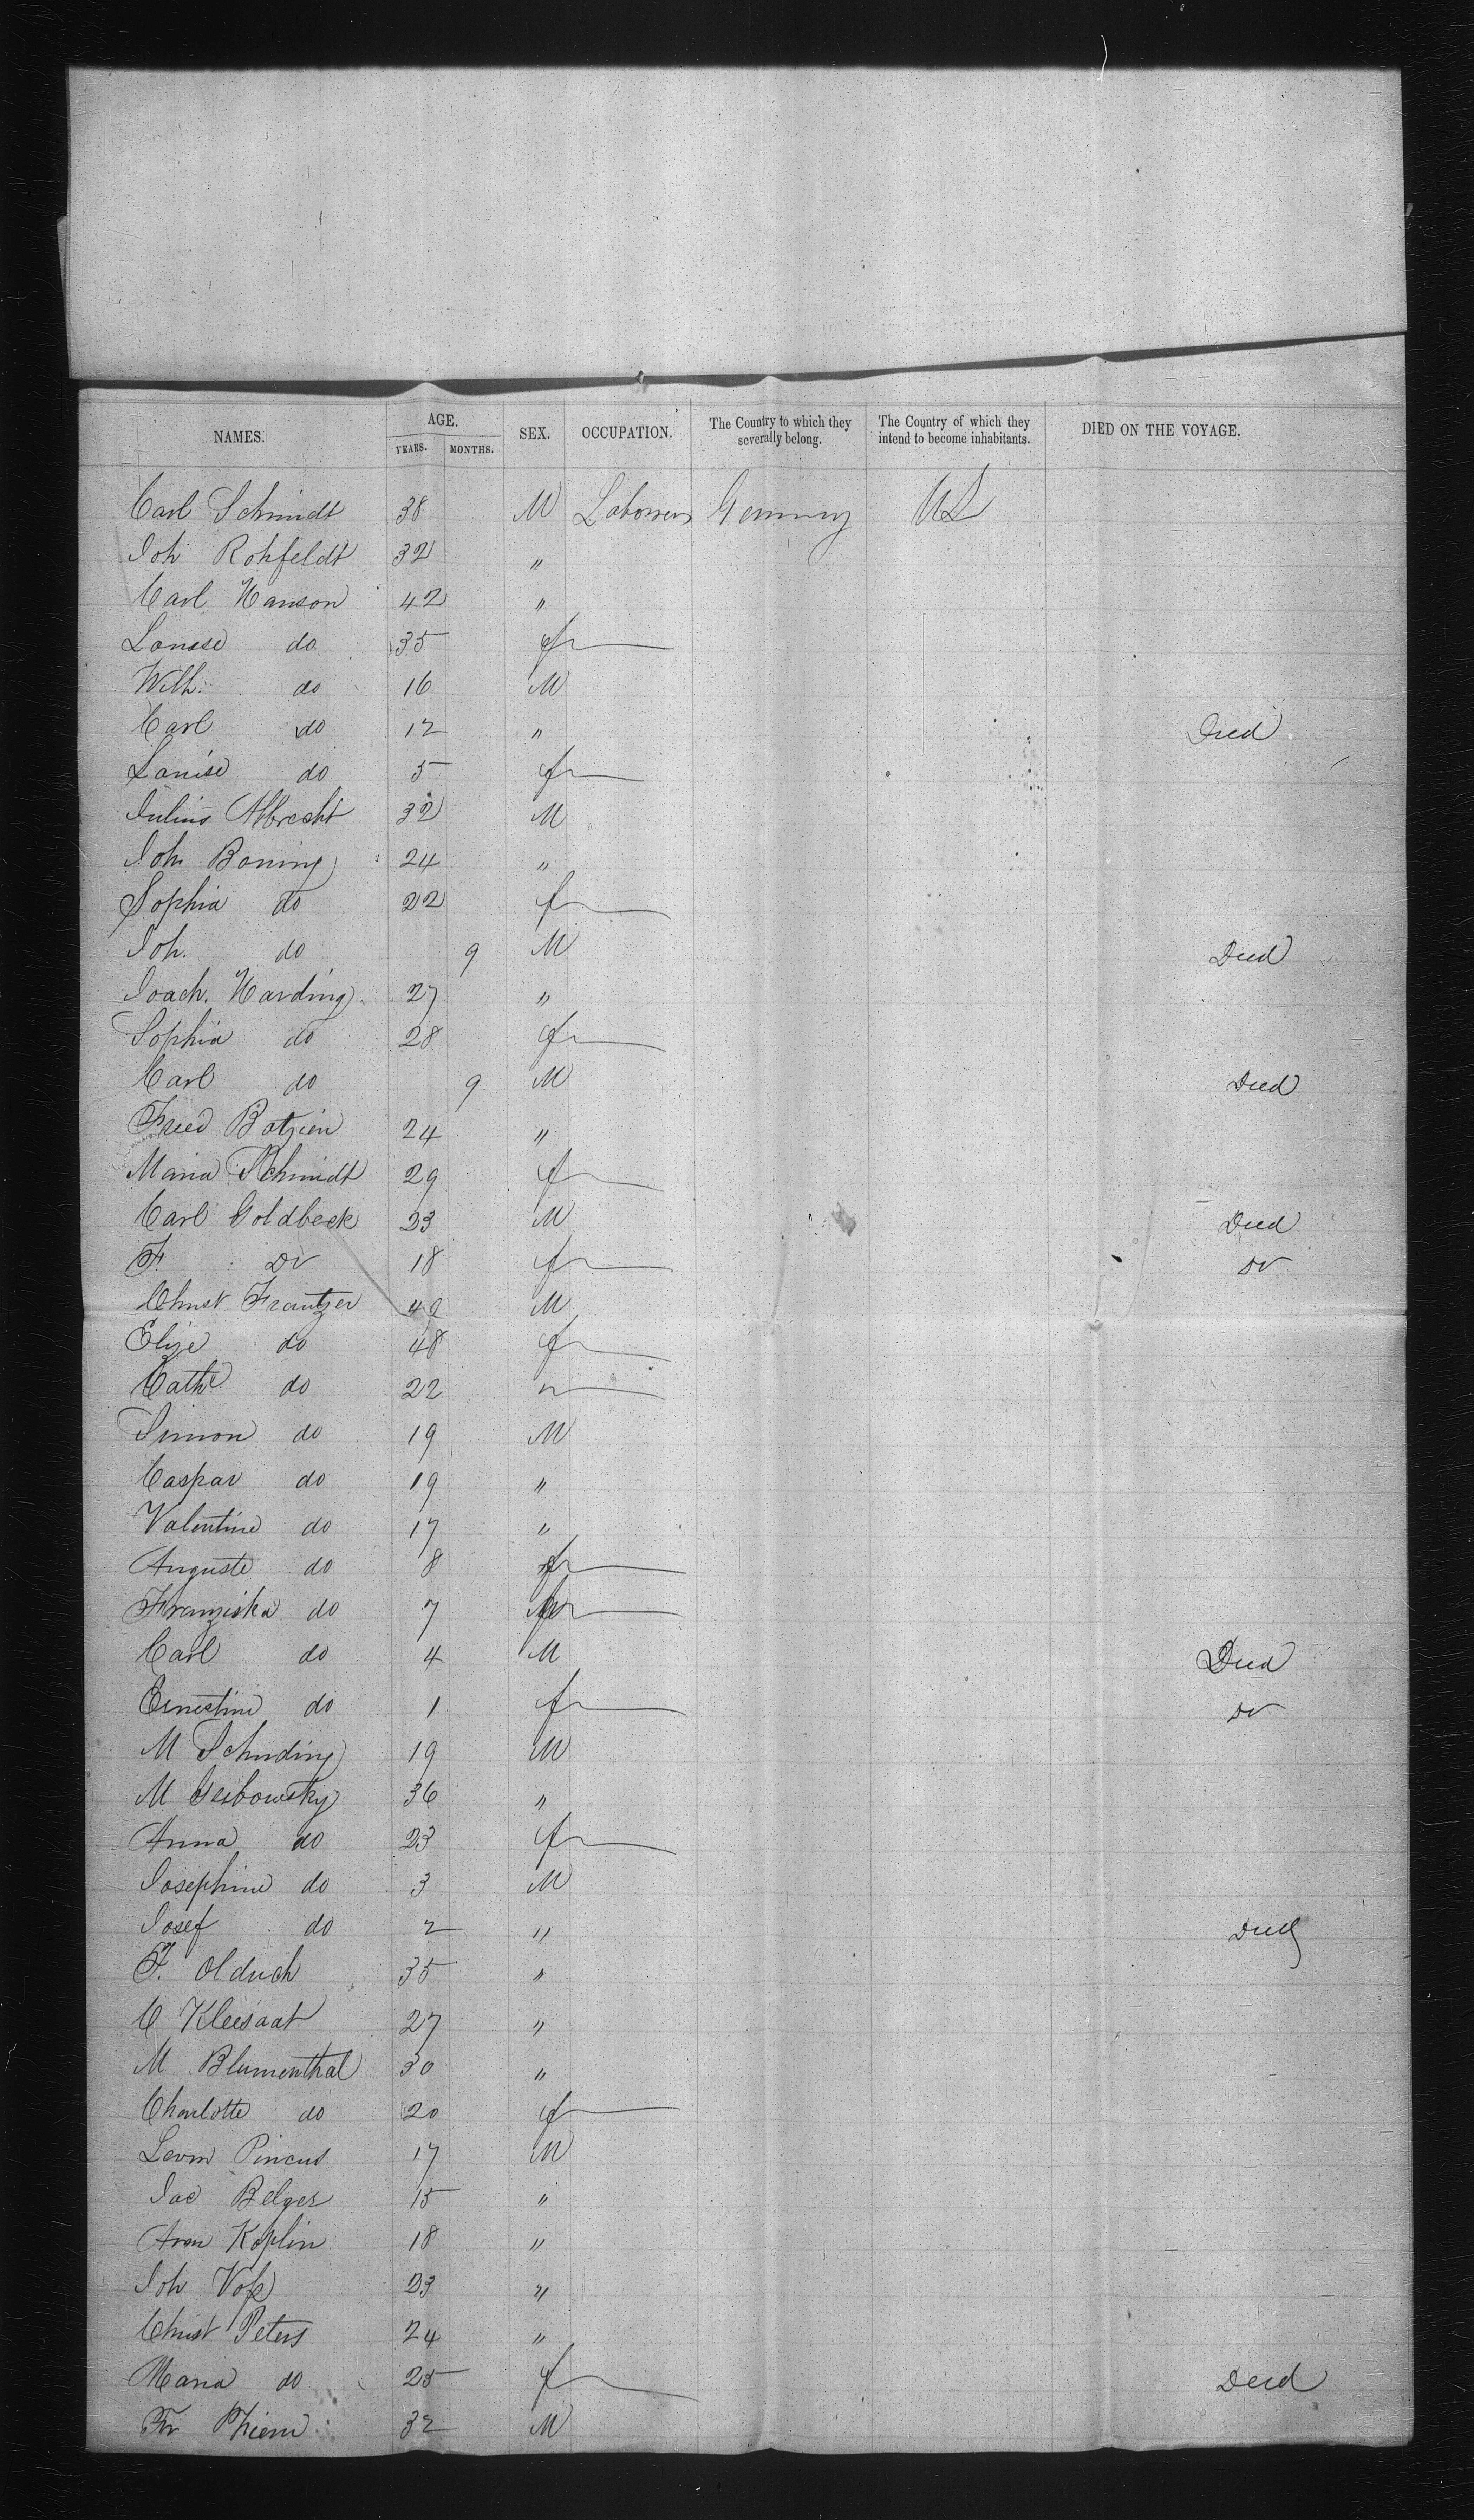 NAMES. AGE. YEARS. MONTHS. SEX. OCCUPATION. The Country to which they severally belong. The Country of which they intend to become inhabitants. DIED ON THE VOYAGE.
Carl Schmidt 38 M Labourers Germany US
Joh Rohfeldt 32 "
Carl Hanson 42 "
Louise do 35 f
Wilh. do 16 M
Carl do 12 " Died
Louise do 5 f
Julius Albrecht 32 M
Joh Boning 24 "
Sophia do 22 f
Joh. do 9 M Died
Joach. Harding 27 "
Sophia do 28 f
Carl do 9 M Died
Fried Botzien 24 "
Maria Schmidt 29 f
Carl Goldbeck 23 M Died
F. Do 18 f Do
Christ Frantzer 42 M
Elize do 48 f
Cathe do 22 "
Simon do 19 M
Caspar do 19 "
Valentine do 17 "
Auguste do 8 f
Franziska do 7 f
Carl do 4 M Died
Ernestine do 1 f Do
M Schuding 19 M
M 36 "
Anna do 23 f
Josephine do 3 M
Josef do 2 " Died
F. Olduch 35 "
C Kleesaat 27 "
M Blumenthal 30 "
Charlotte do 20 f
Levin Pincus 17 M
Jac Belger 15 "
Aron Koplin 18 "
Joh Voß 23 "
Christ Peters 24 "
Maria do 25 f Died
Fr Thiem 32 M